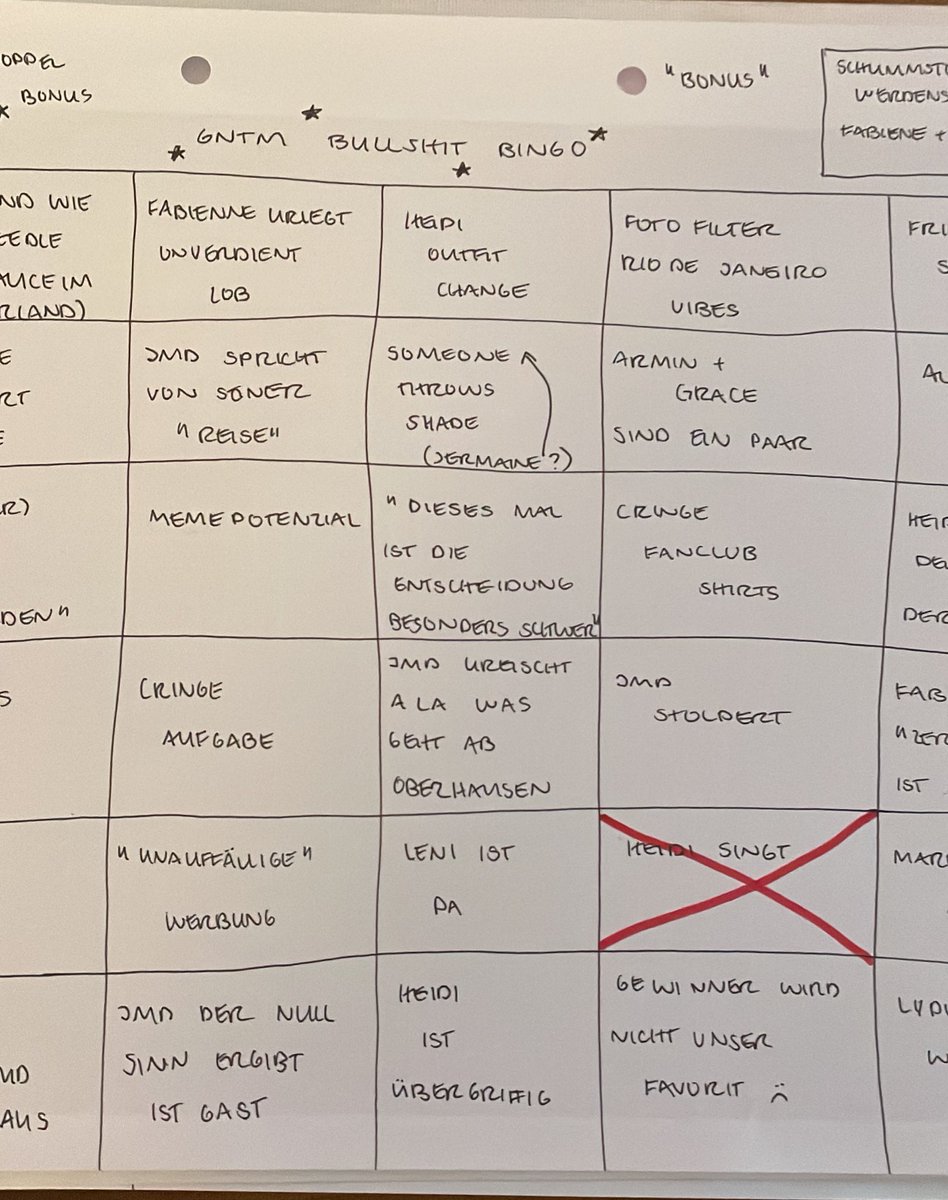 OPPEL
BONUS
"BONUS"
SCHUMMST
WERDENS
FABIENE +
GNTM BULLSHIT BINGO
ND WIE
EEDLE
ALICE IM
RLAND)
FABIENNE KRIEGT
UNVERDIENT
LOB
HEIDI
OUTFIT
CHANGE
FOTO FILTER
RIO DE JANEIRO
VIBES
FRI
S
E
RT
E
JMD SPRICHT
VON SEINER
"REISE"
SOMEONE
THROWS
SHADE
(JERMAINE?)
ARMIN +
GRACE
SIND EIN PAAR
AU
R)
DEN"
MEMEPOTENZIAL
"DIESES MAL
IST DIE
ENTSCHEIDUNG
BESONDERS SCHWER"
CRINGE
FANCLUB
SHIRTS
HEID
DE
DER
S
CRINGE
AUFGABE
JMD KREISCHT
A LA WAS
GEHT AB
OBERHAUSEN
JMD
STOLPERT
FAB
"ZER
IST
"UNAUFFÄLLIGE"
WERBUNG
LENI IST
DA
HEIDI SINGT
MAR
MD
AUS
JMD DER NULL
SINN ERGIBT
IST GAST
HEIDI
IST
ÜBERGRIFFIG
GEWINNER WIRD
NICHT UNSER
FAVORIT :(
LYDI
W